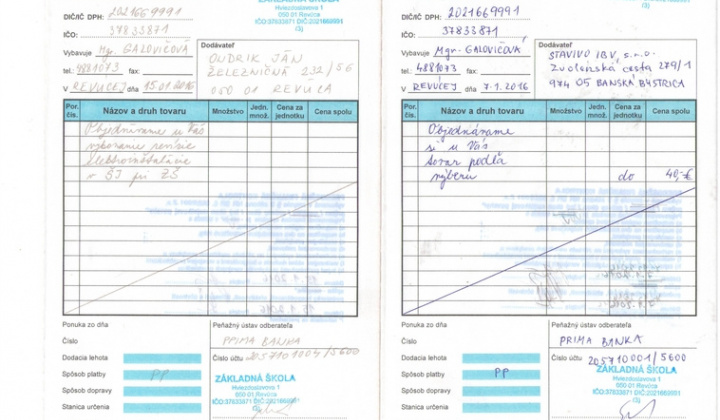 ZÁKLADNÁ ŠKOLA
Hviezdoslavova 1
050 01 Revúca
IČO:37833871 DIČ:2021669991
(3)
DIČ/IČ DPH: 2021669991
IČO: 37833871
Vybavuje Mgr. GALOVIČOVÁ
tel.: 4881073 fax:
V REVÚCEJ dňa 15.01.2016
Dodávateľ
ONDRIK JÁN
ŽELEZNIČNÁ 232/56
050 01 REVÚCA
Por. čís. Názov a druh tovaru Množstvo Jedn. množ. Cena za jednotku Cena spolu
Objednávame u Vás
vykonanie revízie
elektroinštalácie
v ŠJ pri ZŠ
Ponuka zo dňa
Číslo
Dodacia lehota
Spôsob platby PP
Spôsob dopravy
Stanica určenia
Peňažný ústav odberateľa
PRIMA BANKA
Číslo účtu 2057101004/5600
ZÁKLADNÁ ŠKOLA
Hviezdoslavova 1
050 01 Revúca
IČO:37833871 DIČ:2021669991
Hviezdoslavova 1
050 01 Revúca
IČO:37833871 DIČ:2021669991
(3)
DIČ/IČ DPH: 2021669991
IČO: 37833871
Vybavuje Mgr. GALOVIČOVÁ
tel.: 4881073 fax:
V REVÚCEJ dňa 7.1.2016
Dodávateľ
STAVIVO IBV, s.r.o.
Zvolenská cesta 279/1
974 05 BANSKÁ BYSTRICA
Por. čís. Názov a druh tovaru Množstvo Jedn. množ. Cena za jednotku Cena spolu
Objednávame
si u Vás
tovar podľa
výberu do 40,-€
Ponuka zo dňa
Číslo
Dodacia lehota
Spôsob platby PP
Spôsob dopravy
Stanica určenia
Peňažný ústav odberateľa
PRIMA BANKA
Číslo účtu 2057101001/5600
ZÁKLADNÁ ŠKOLA
Hviezdoslavova 1
050 01 Revúca
IČO:37833871 DIČ:2021669991
(3)